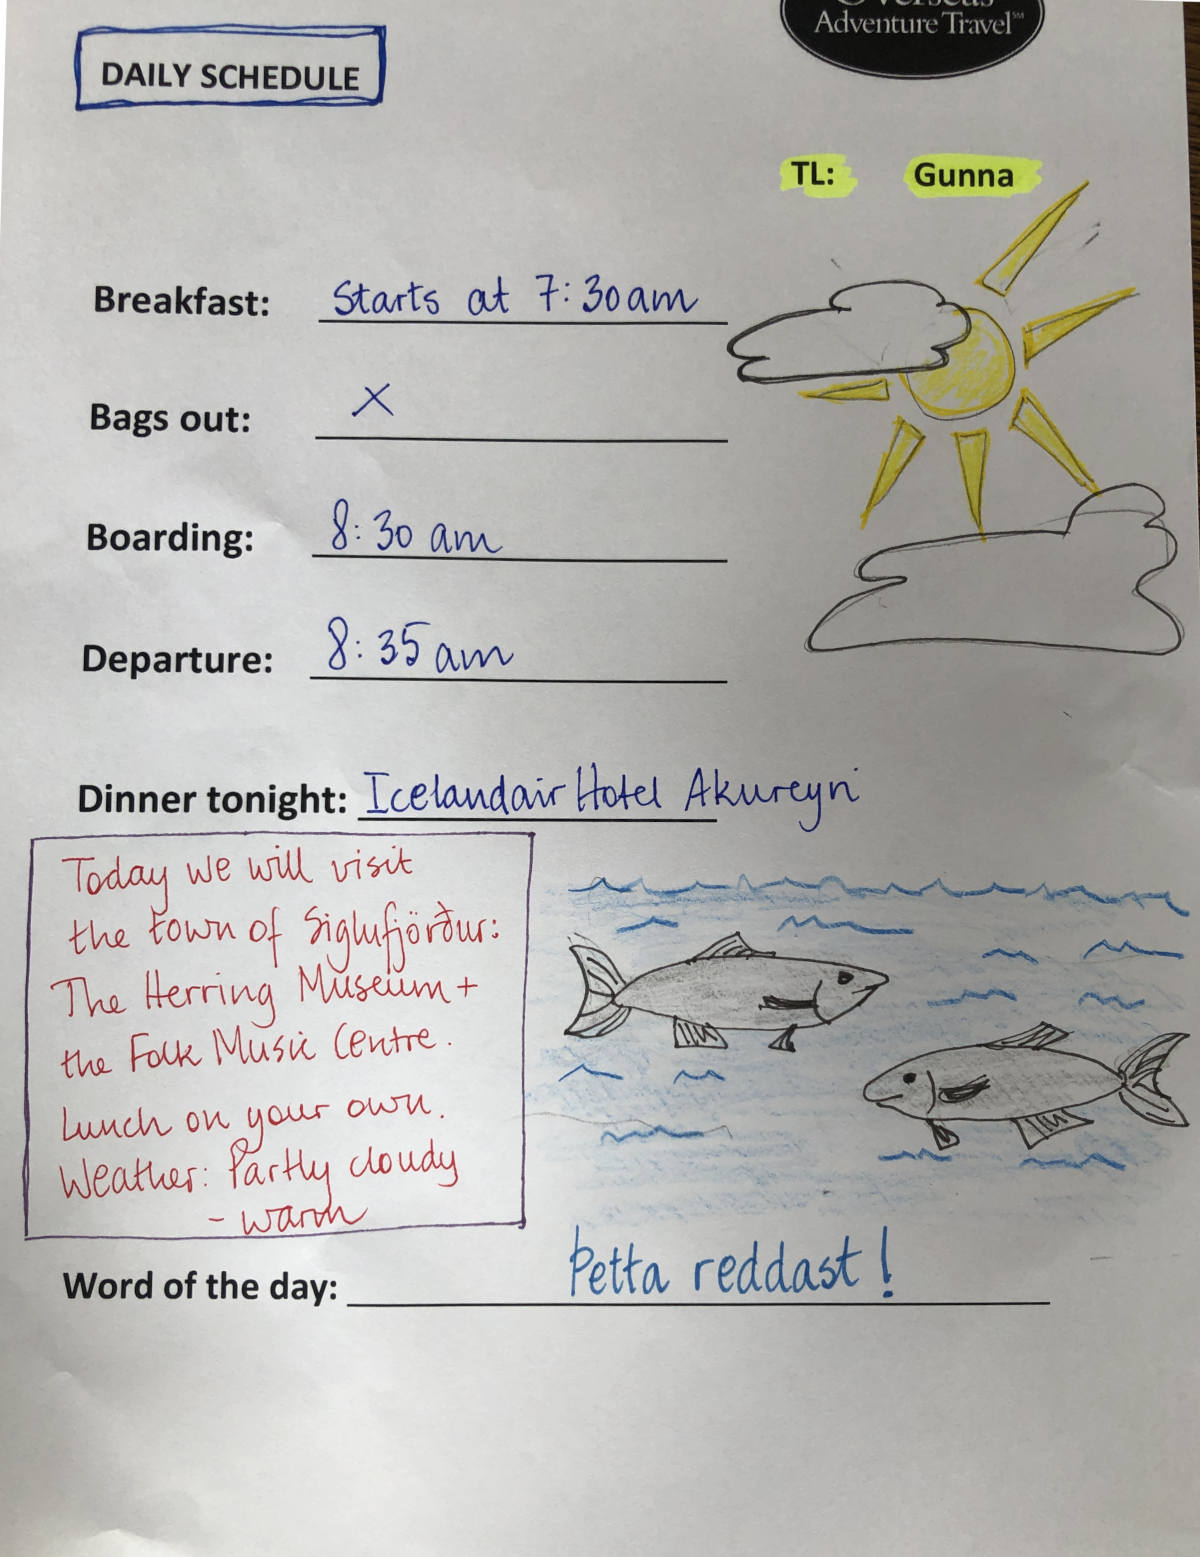 Overseas
Adventure Travel℠
DAILY SCHEDULE
TL: Gunna
Breakfast: Starts at 7:30am
Bags out: X
Boarding: 8:30 am
Departure: 8:35am
Dinner tonight: Icelandair Hotel Akureyri
Today we will visit
the town of Siglufjörður:
The Herring Museum +
the Folk Music Centre.
Lunch on your own.
Weather: Partly cloudy
- warm
Word of the day: Þetta reddast!